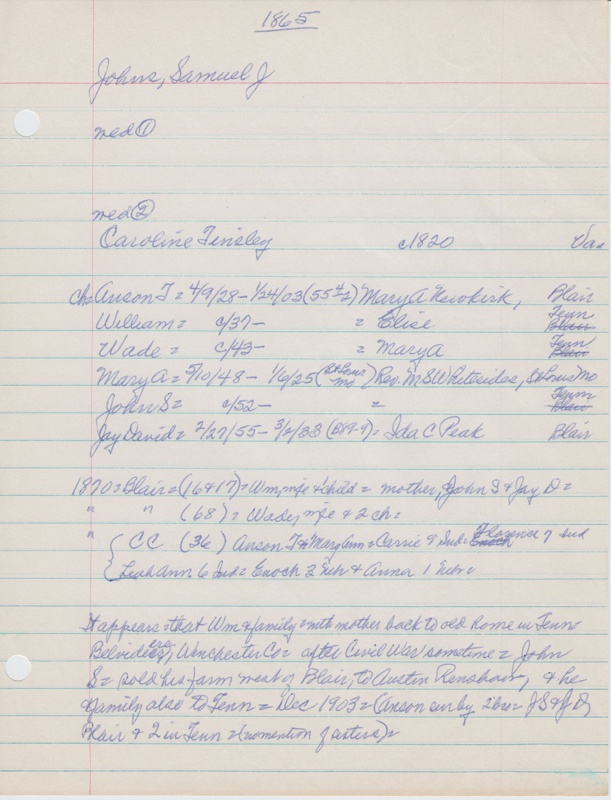 1865
Johns, Samuel J
med ①
med ②
Caroline Tinsley c1820 Va.
ch= Anson T = 4/9/28 - 1/24/03 (55#2) Mary A Newkirk, Blair
William = c/37- = Elise Tenn Blair
Wade = c/43- = Mary A Tenn Blair
Mary A = 5/10/48 - 1/6/25 (St Louis Mo) Rev. M S Whitesides, St Louis Mo
John S = c/52- = Tenn Blair
Jay David = 2/27/55 - 3/2/33 = Ida C Peak Blair
1870 = Blair = (16&17) = Wm, wife & child = mother, John S & Jay D =
" " (68) = Wade, wife & 2 ch =
" CC (36) Anson T & Mary Ann = Carrie 9 Ind = Florence 7 Ind Enoch
Leah Ann 6 Ind = Enoch 3 Nebr & Anna 1 Nebr =
It appears = that Wm & family = with mother back to old home in Tenn =
Belvidere, Winchester Co = after Civil War sometime = John
S = sold his farm west of Blair, to Austin Renshaw, & he
& family also to Tenn = Dec 1903 = (Anson sur by 2 bro = J S & J D,
Blair & 2 in Tenn = (no mention of sisters) =